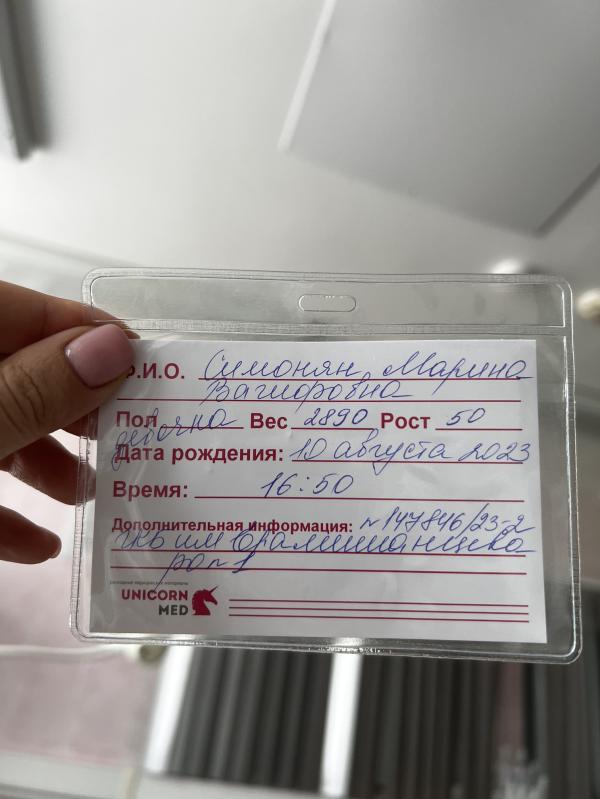 Ф.И.О. Симонян Марина
Вагифовна
Пол девочка Вес 2890 Рост 50
Дата рождения: 10 августа 2023
Время: 16:50
Дополнительная информация: №147846/23-2
ГКБ им
расходные медицинские материалы
UNICORN
MED